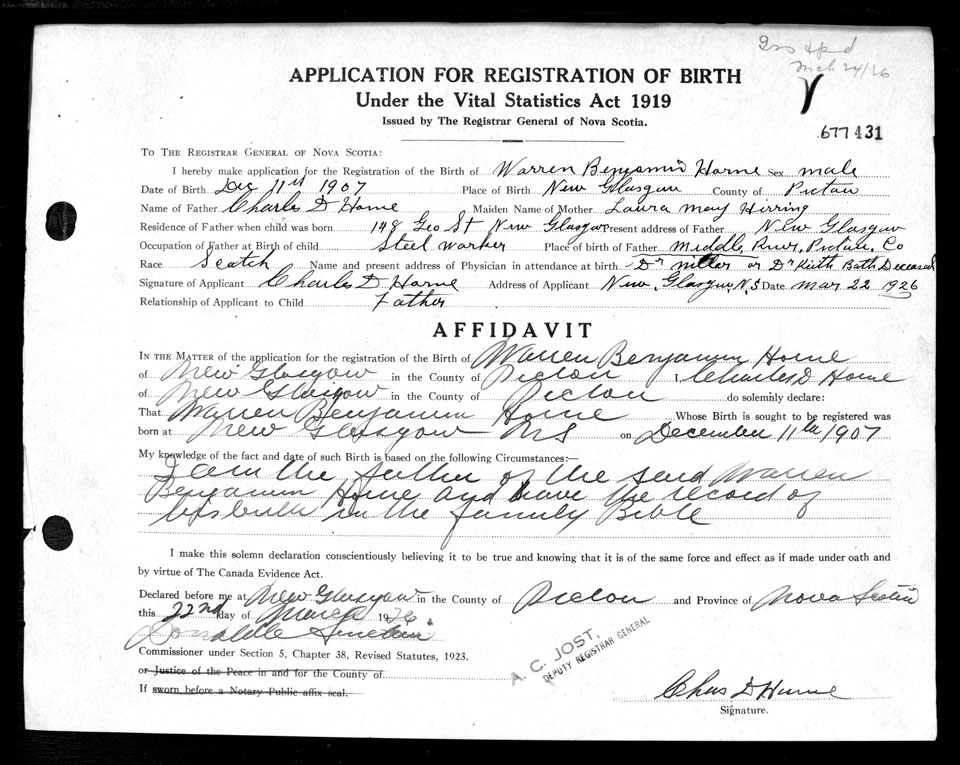 Mch 24/26
APPLICATION FOR REGISTRATION OF BIRTH
Under the Vital Statistics Act 1919
Issued by The Registrar General of Nova Scotia.
677431
TO THE REGISTRAR GENERAL OF NOVA SCOTIA:
I hereby make application for the Registration of the Birth of Warren Benjamin Horne Sex male
Date of Birth Dec 11st 1907 Place of Birth New Glasgow County of Pictou
Name of Father Charles D Horne Maiden Name of Mother Laura May Hirring
Residence of Father when child was born 148 Geo St New Glasgow Present address of Father New Glasgow
Occupation of Father at Birth of child Steel worker Place of birth of Father Middle River, Pictou, Co
Race Scotch Name and present address of Physician in attendance at birth Dr Miller or Dr Keith Both Deceased
Signature of Applicant Charles D Horne Address of Applicant New Glasgow, N.S Date Mar 22 1926
Relationship of Applicant to Child Father
AFFIDAVIT
IN THE MATTER of the application for the registration of the Birth of Warren Benjamin Horne
of New Glasgow in the County of Pictou I, Charles D Horne
of New Glasgow in the County of Pictou do solemnly declare:
That Warren Benjamin Horne Whose Birth is sought to be registered was
born at New Glasgow NS on December 11th 1907
My knowledge of the fact and date of such Birth is based on the following Circumstances:—
I am the father of the said Warren
Benjamin Horne and have the record of
his birth in the family Bible
I make this solemn declaration conscientiously believing it to be true and knowing that it is of the same force and effect as if made under oath and
by virtue of The Canada Evidence Act.
Declared before me at New Glasgow in the County of Pictou and Province of Nova Scotia
this 22nd day of March 1926
Commissioner under Section 5, Chapter 38, Revised Statutes, 1923.
or Justice of the Peace in and for the County of
If sworn before a Notary Public affix seal.
A. C. JOST,
DEPUTY REGISTRAR GENERAL
Chas D Horne
Signature.